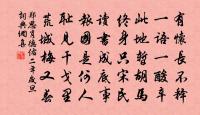 有懷長不釋
一語一酸辛
此地暫胡馬
終身只宋民
讀書成底事
報國是何人
恥見干戈里
荒城梅又春
鄭思肖德佑二年歲旦
詞典網